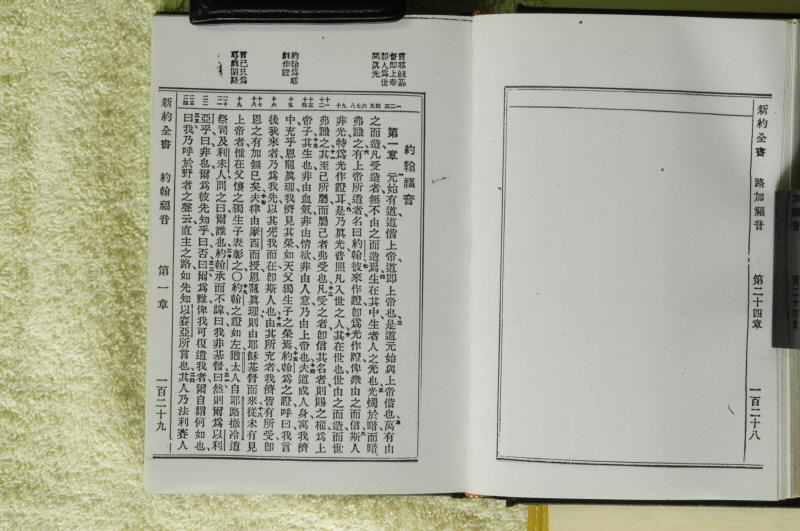 新約全書 路加福音 第二十四章 一百二十八
言耶穌基
督卽上帝
卽人爲世
間眞光
約翰爲耶
穌作證
言己只爲
耶穌開路
約翰福音
第一章 元始有道道偕上帝道卽上帝也是道元始與上帝偕也萬有由
之而造凡受造者無不由之而造焉生在其中生者人之光也光燭於暗而暗
弗識之有上帝所遣者名曰約翰彼來作證卽爲光作證俾衆由之而信斯人
非光特爲光作證耳是乃眞光普照凡入世之人其在世也世由之而造而世
弗識之其至己所屬而屬己者弗受也凡受之者卽信其名者則賜之權爲上
帝子其生也非由血氣非由情欲非由人意乃由上帝也夫道成人身寓我儕
中充乎恩寵眞理我儕見其榮如天父獨生子之榮焉約翰爲之證呼曰我言
後我來者乃爲我先以其先我而在卽斯人也由其所充者我儕皆有所受卽
恩之有加無已矣夫律由摩西而授恩寵眞理則由耶穌基督而來從未有見
上帝者惟在父懷之獨生子表彰之〇約翰之證如左猶太人自耶路撒冷遣
祭司及利未人問之曰爾誰也約翰承而不諱曰我非基督曰然則爾爲以利
亞乎曰非也爾爲彼先知乎曰否曰爾爲誰俾我可復遣我者爾自謂何如也
曰我乃呼於野者之聲云直主之路如先知以賽亞所言也其人乃法利賽人
新約全書 約翰福音 第一章 一百二十九